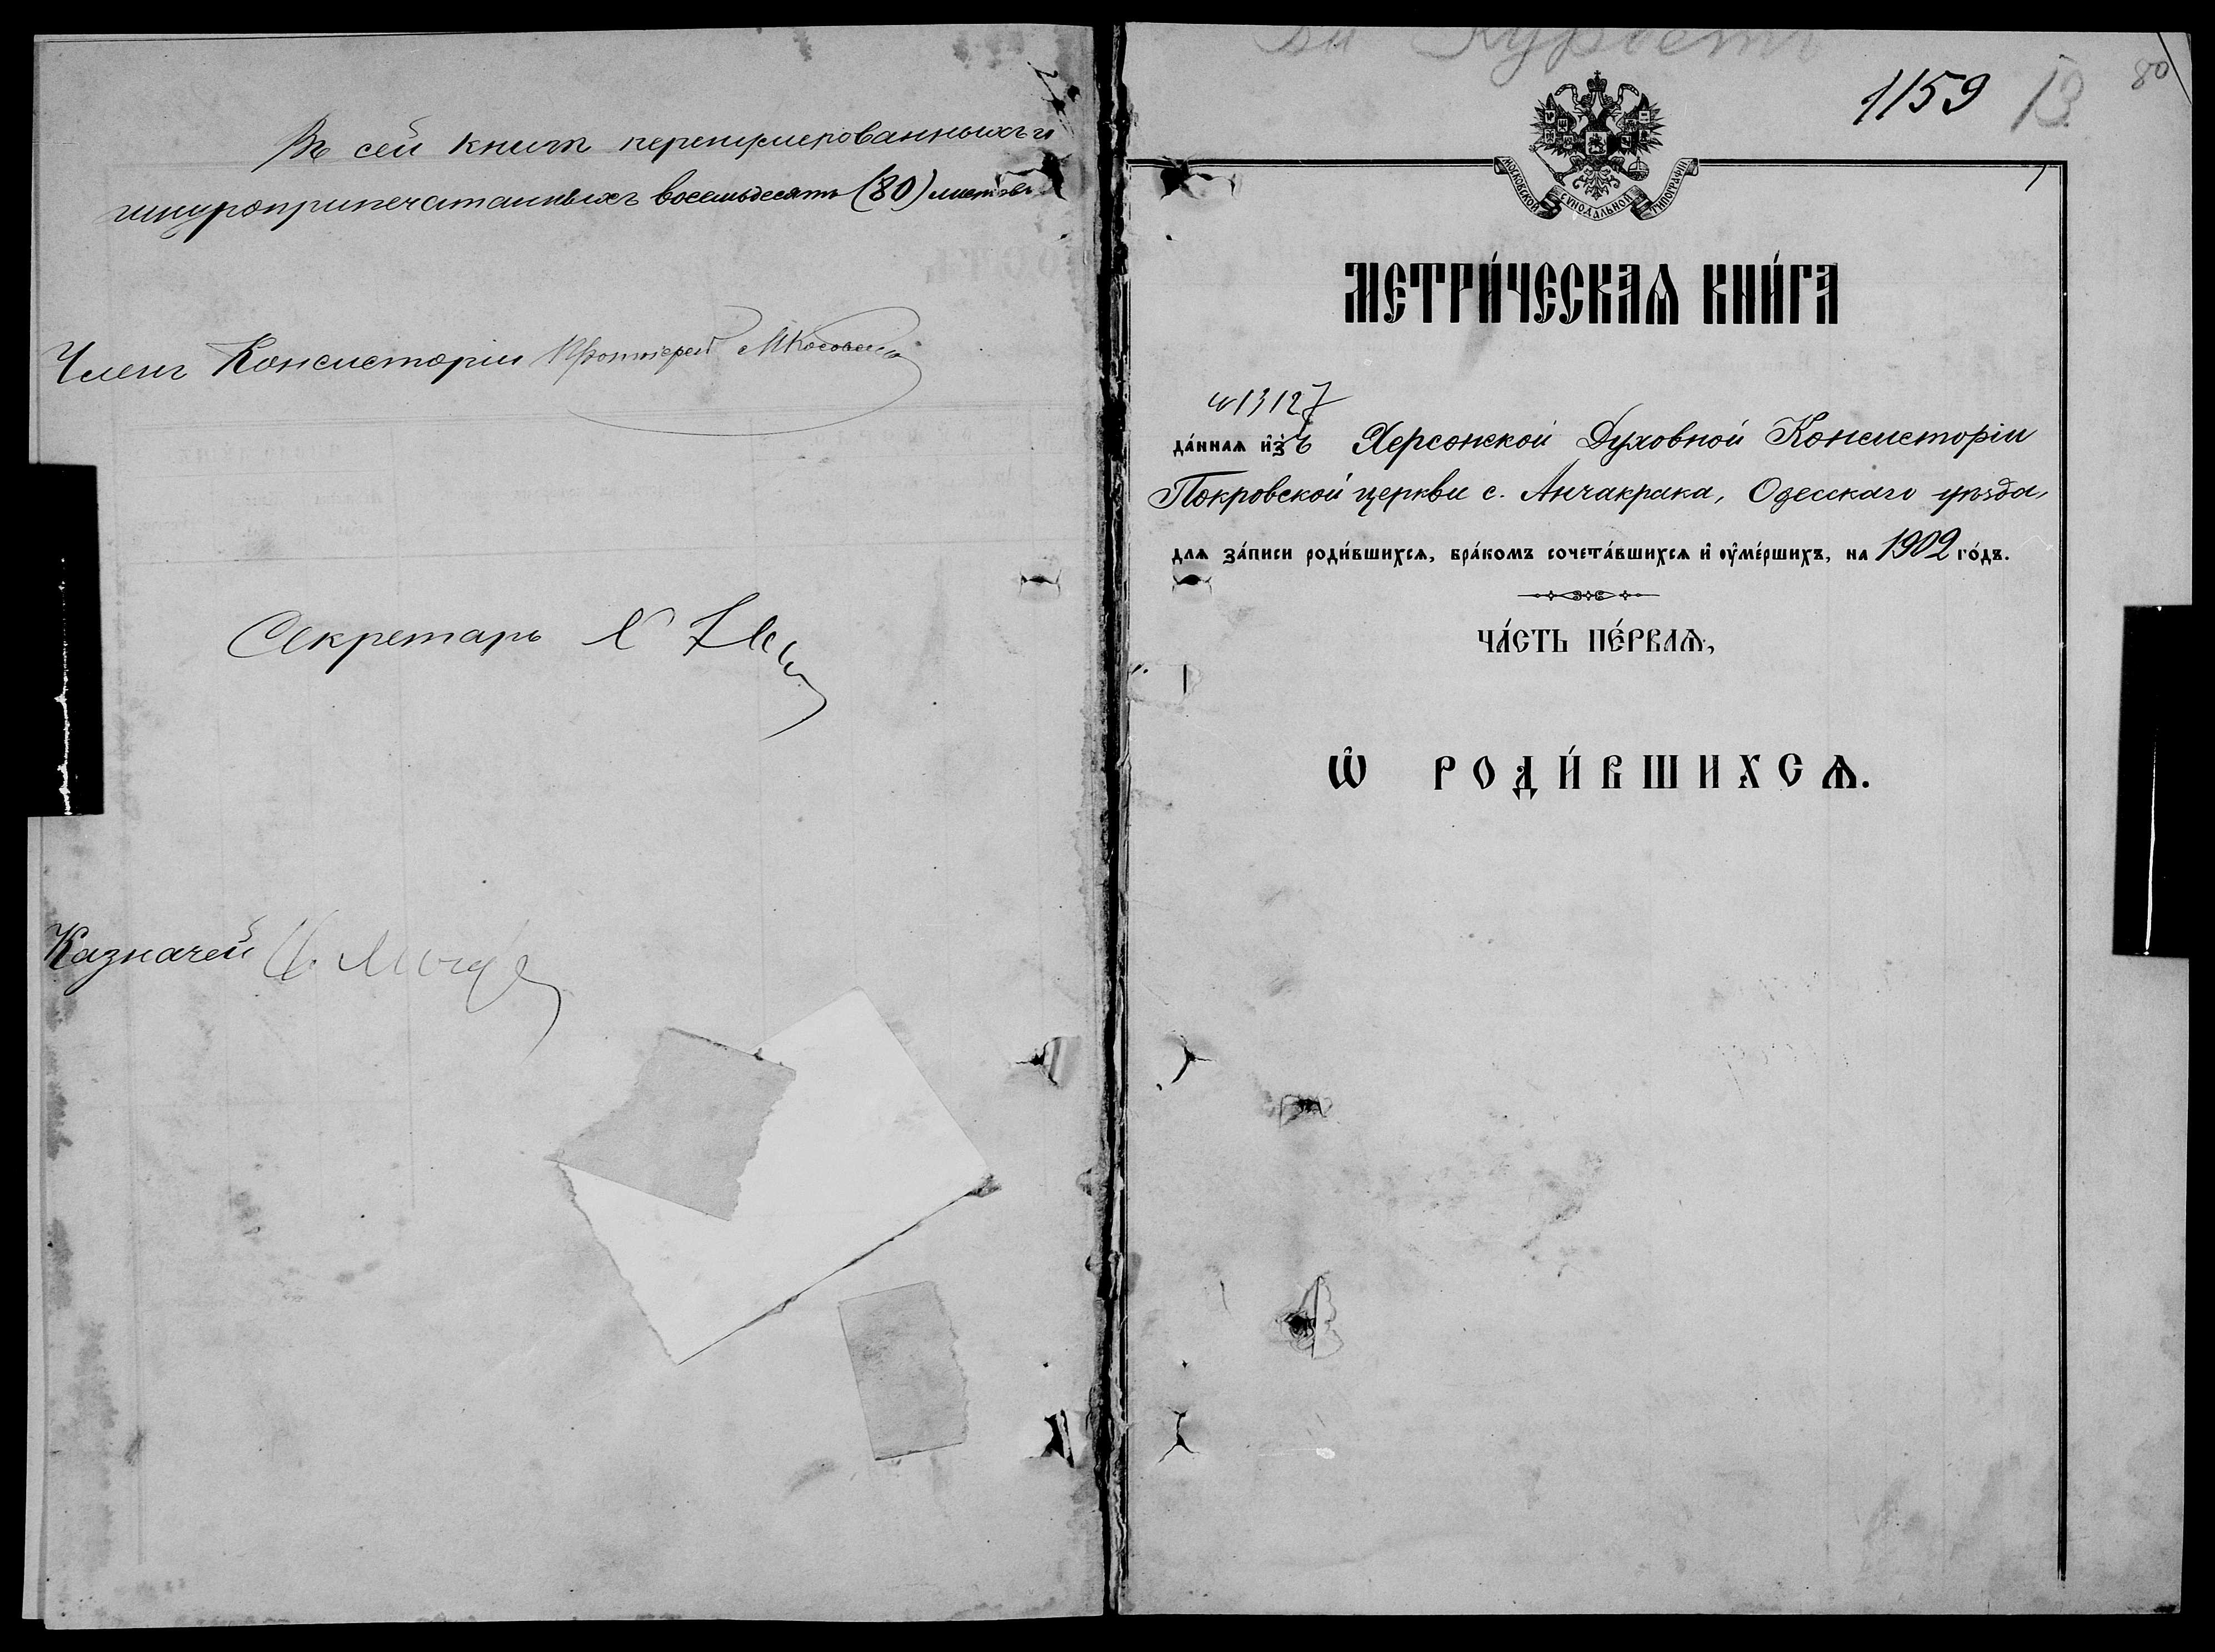 Въ сей книгѣ перенумерованныхъ и
шнуроприпечатанныхъ восемьдесятъ (80) листовъ
Членъ Консисторіи Протоіерей
Секретарь
Казначей
1159 13 80
МОСКОВСКОЙ СѴНОДАЛЬНОЙ ТИПОГРАФІИ
1
МЕТРИ́ЧЕСКАѦ КНИ́ГА
№ 13127
да́ннаѧ и҆зъ Херсонской Духовной Консисторіи
Покровской церкви с. Анчакрака, Одесскаго уѣзда,
для за́писи роди́вшихсѧ, бра́комъ сочета́вшихсѧ и҆ ᲂу҆ме́ршихъ, на 1902 го́дъ.
ЧА́СТЬ ПЕ́РВАѦ,
Ѽ РОДИ́ВШИХСѦ.